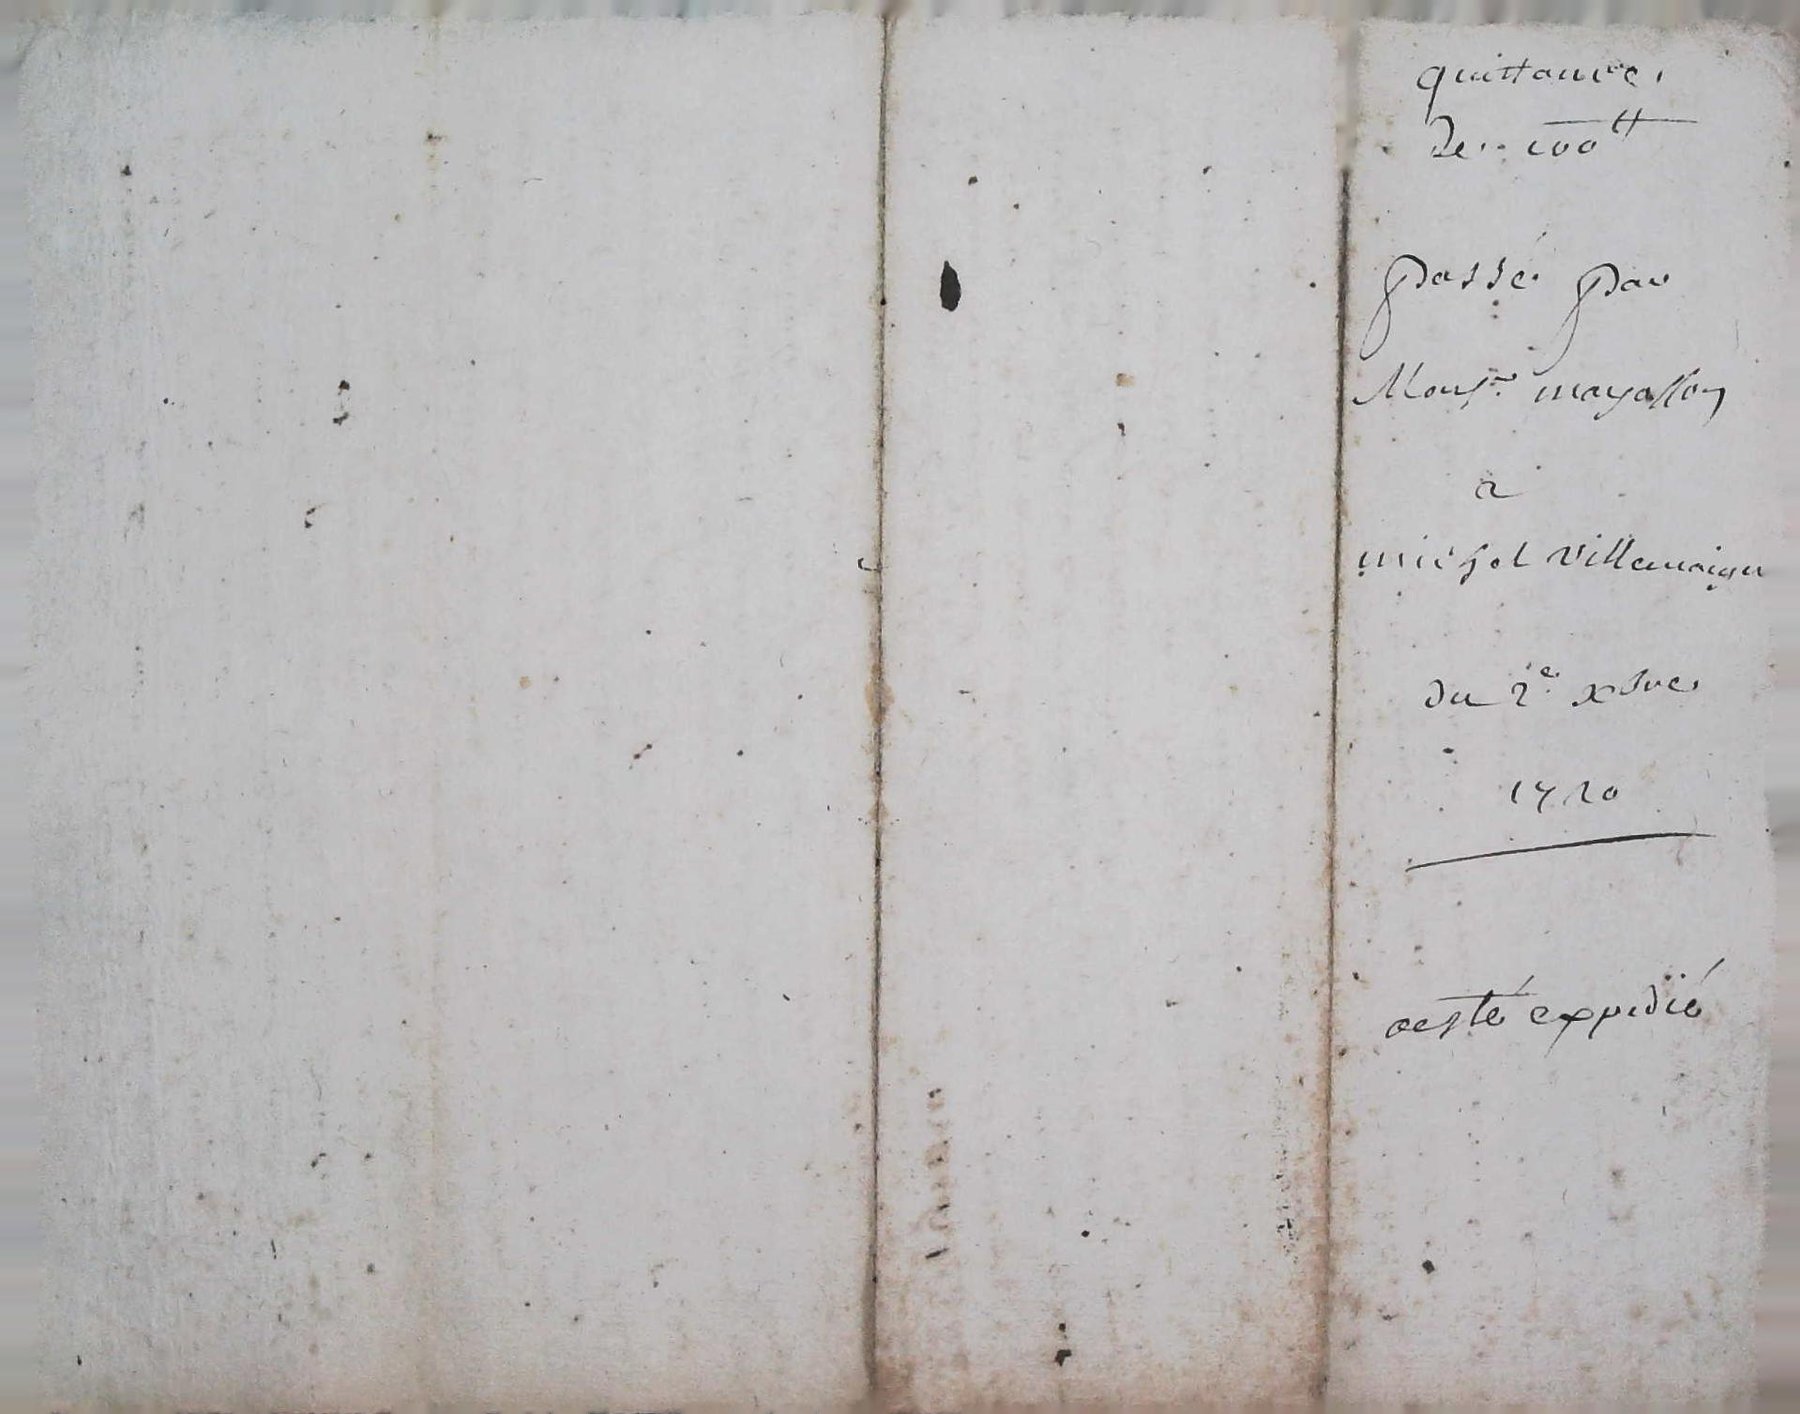 quittance
De 100tt
passé par
Monsr. mayosson
a
michel Villemaign
du 2e xbre
1720
aesté expedié